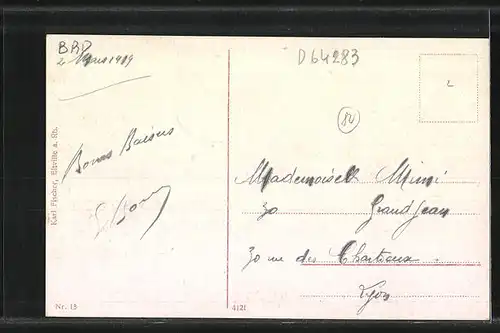 BRD
2 Mars 1919
D64283
Bons Baisers
Mademoiselle Mimi
30 Grand Jean
30 rue des Chartreux
Lyon
Karl Fischer, Eltville a. Rh.
Nr. 13
4121